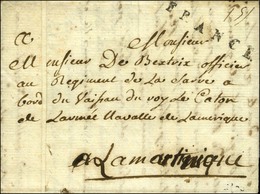 FRANCE
A
Monsieur
Monsieur De Beatrix officier
au Regiment de La Sarre a
bord du Vaisau du roy Le Caton
de Larmée Navalle de Lamerique
a Lamartinique